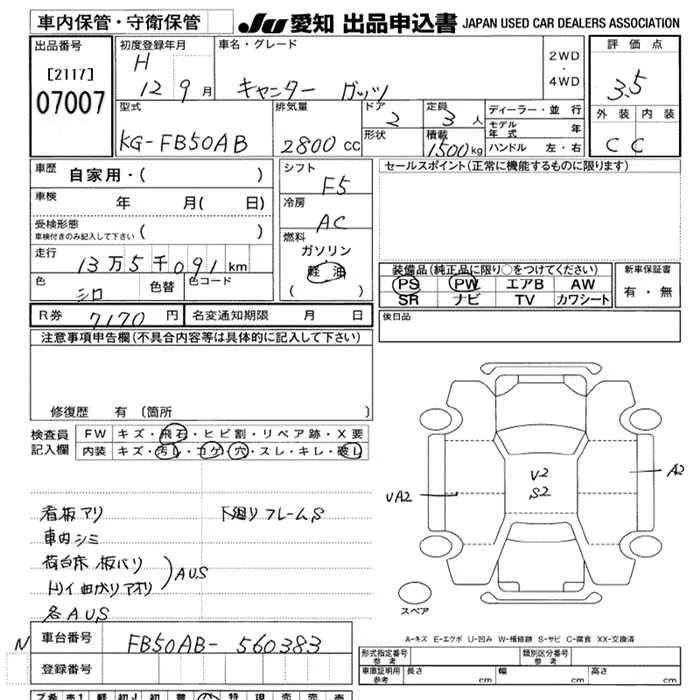 車内保管・守衛保管
JU 愛知 出品申込書 JAPAN USED CAR DEALERS ASSOCIATION
出品番号
[2117]
07007
初度登録年月
H 12 9月
車名・グレード
キャンター ガッツ
2WD
・
4WD
評価点
3.5
外装 内装
C C
型式
KG-FB50AB
排気量
2800 CC
ドア
2
形状
定員
3 人
積載
1500 kg
ディーラー・並行
モデル年式 年
ハンドル 左・右
車歴
自家用・( )
車検
年 月( 日)
受検形態
車検付きのみ記入して下さい
走行
13万5千091km
色
シロ
色替
色コード
シフト
F5
冷房
AC
燃料
ガソリン
軽油
( )
セールスポイント(正常に機能するものに限ります)
装備品(純正品に限り○をつけてください)
PS PW エアB AW
SR ナビ TV カワシート
新車保証書
有・無
R券 7170 円
名変通知期限 月 日
後日品
注意事項申告欄(不具合内容等は具体的に記入して下さい)
修復歴 有(箇所 )
検査員
記入欄
FW キズ・飛石・ヒビ割・リペア跡・X要
内装 キズ・汚し・コゲ・穴・スレ・キレ・破し
看板アリ
下廻りフレームS
車内シミ
荷台床板バリ
トリイ曲がりアオリ
AUS
各AUS
V2
S2
UA2
A2
スペア
A-キズ E-エクボ U-凹み W-補修跡 S-サビ C-腐食 XX-交換済
N
車台番号
FB50AB-560383
登録番号
形式指定番号
参考
類別区分番号
参考
車庫証明用
参考
長さ cm
幅 cm
高さ cm